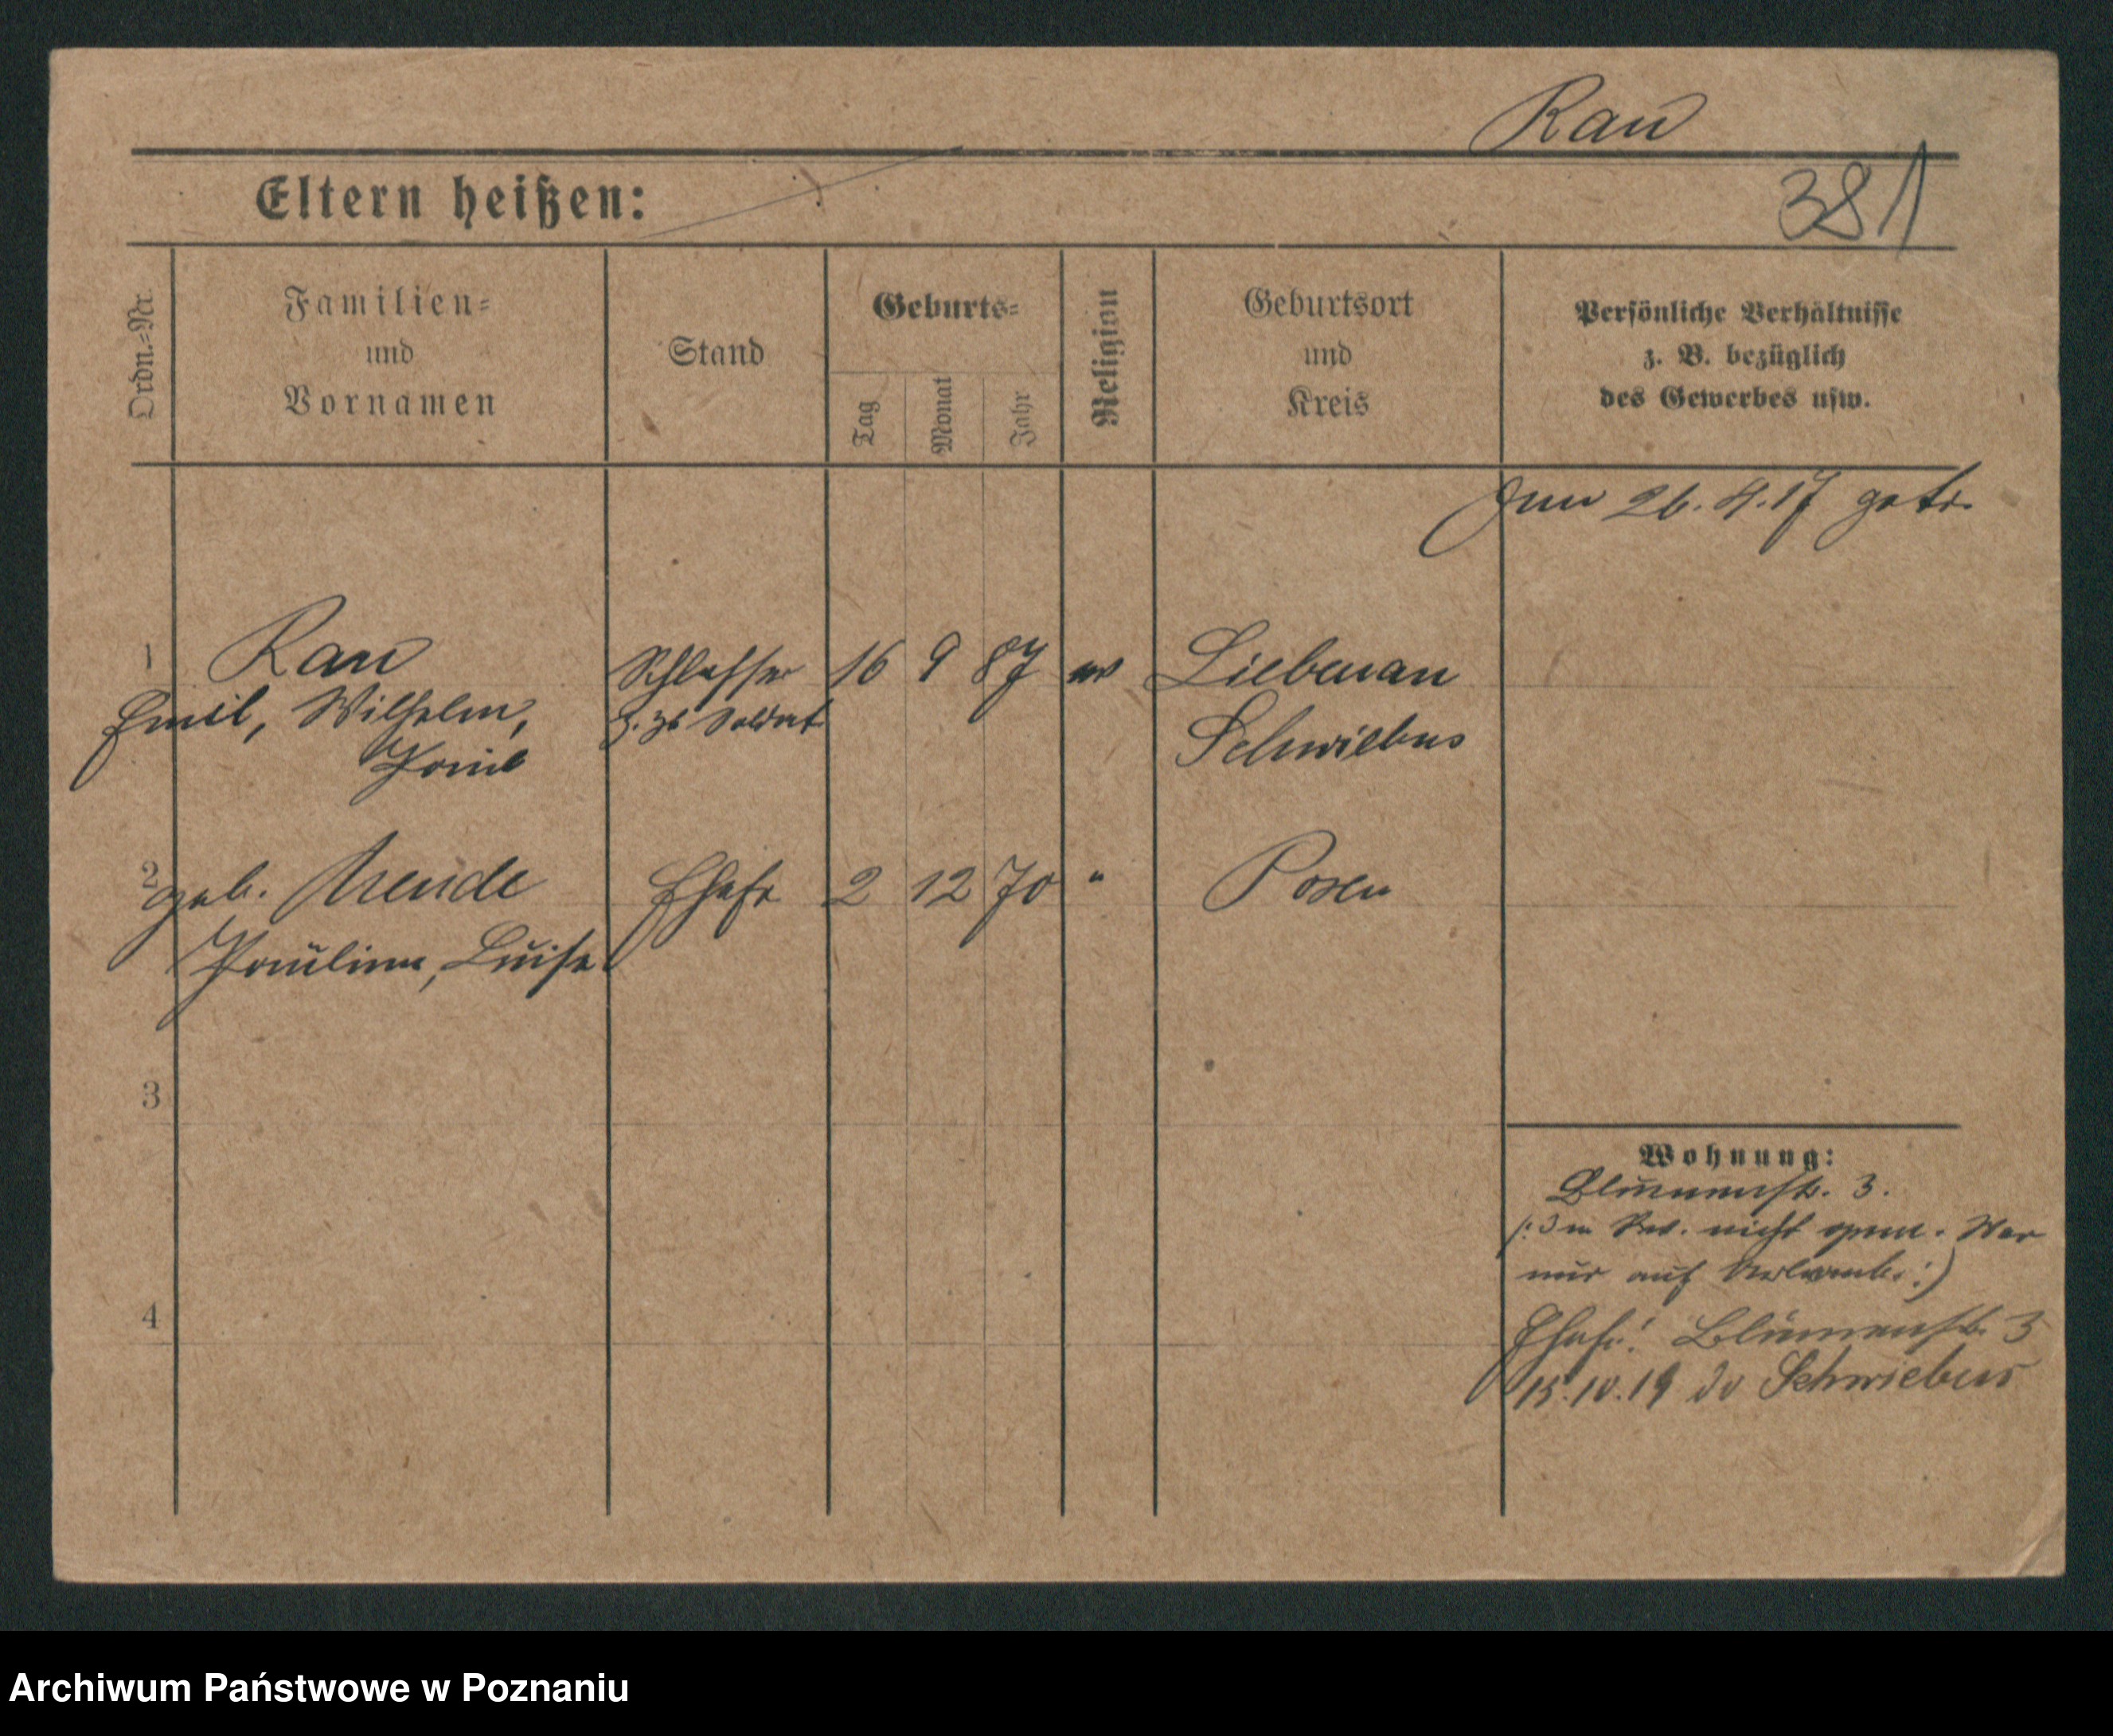 Rau
381
Eltern heißen:
Ordn.=Nr.
Familien=
und
Vornamen
Stand
Geburts=
Tag
Monat
Jahr
Religion
Geburtsort
und
Kreis
Persönliche Verhältnisse
z. B. bezüglich
des Gewerbes usw.
26.4.17 getr.
1
Rau
Emil, Wilhelm,
Paul
Schlosser
z. Zt Soldat
16 9 87 ev
Liebenau
Schwiebus
2
geb. Arende
Pauline, Luise
Ehefr
2 12 70 "
Posen
3
4
Wohnung:
Blumenstr. 3.
nicht gem. War
nur auf Urlaub :)
Ehefr: Blumenstr. 3
15.10.19 Schwiebus
Archiwum Państwowe w Poznaniu